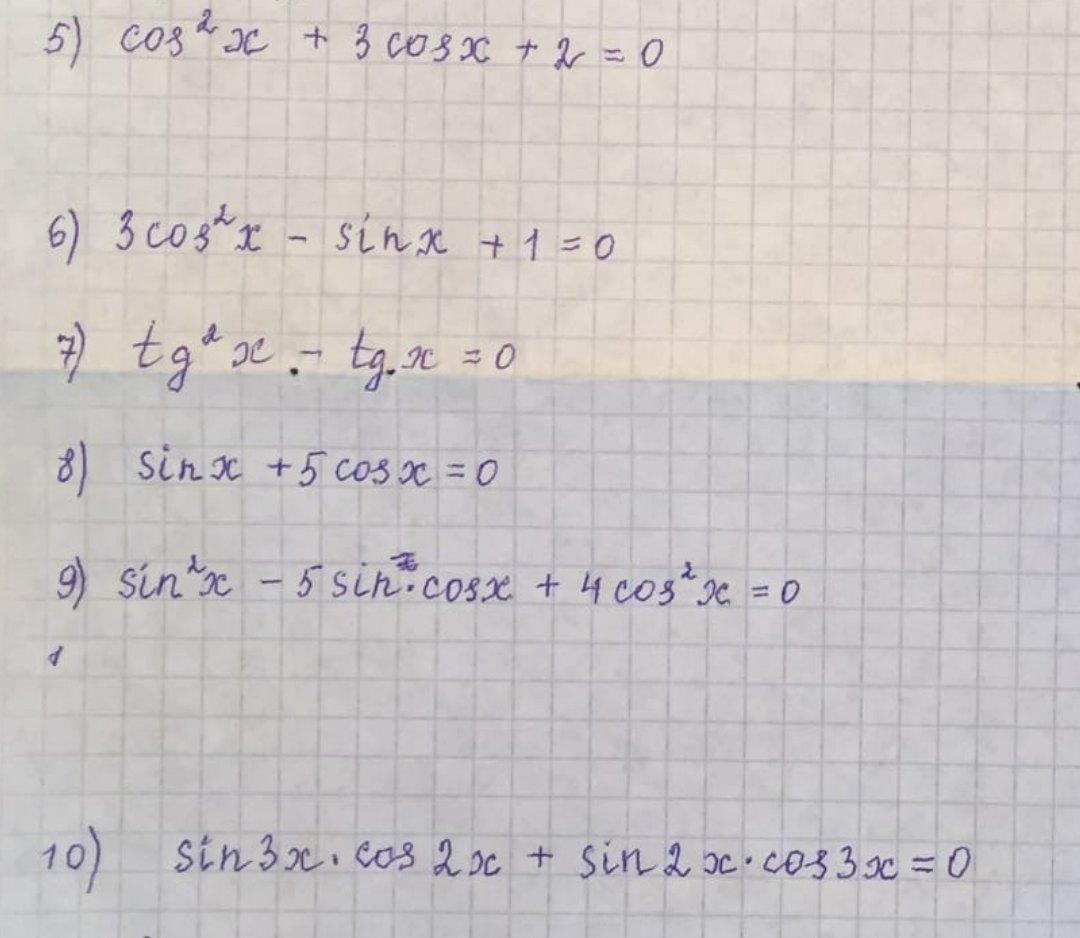 5) cos²x + 3 cosx + 2 = 0
6) 3cos²x - sinx + 1 = 0
7) tg²x - tg x = 0
8) sinx + 5 cosx = 0
9) sin²x - 5 sin x · cosx + 4 cos²x = 0
10) sin3x · cos 2x + sin2x · cos3x = 0